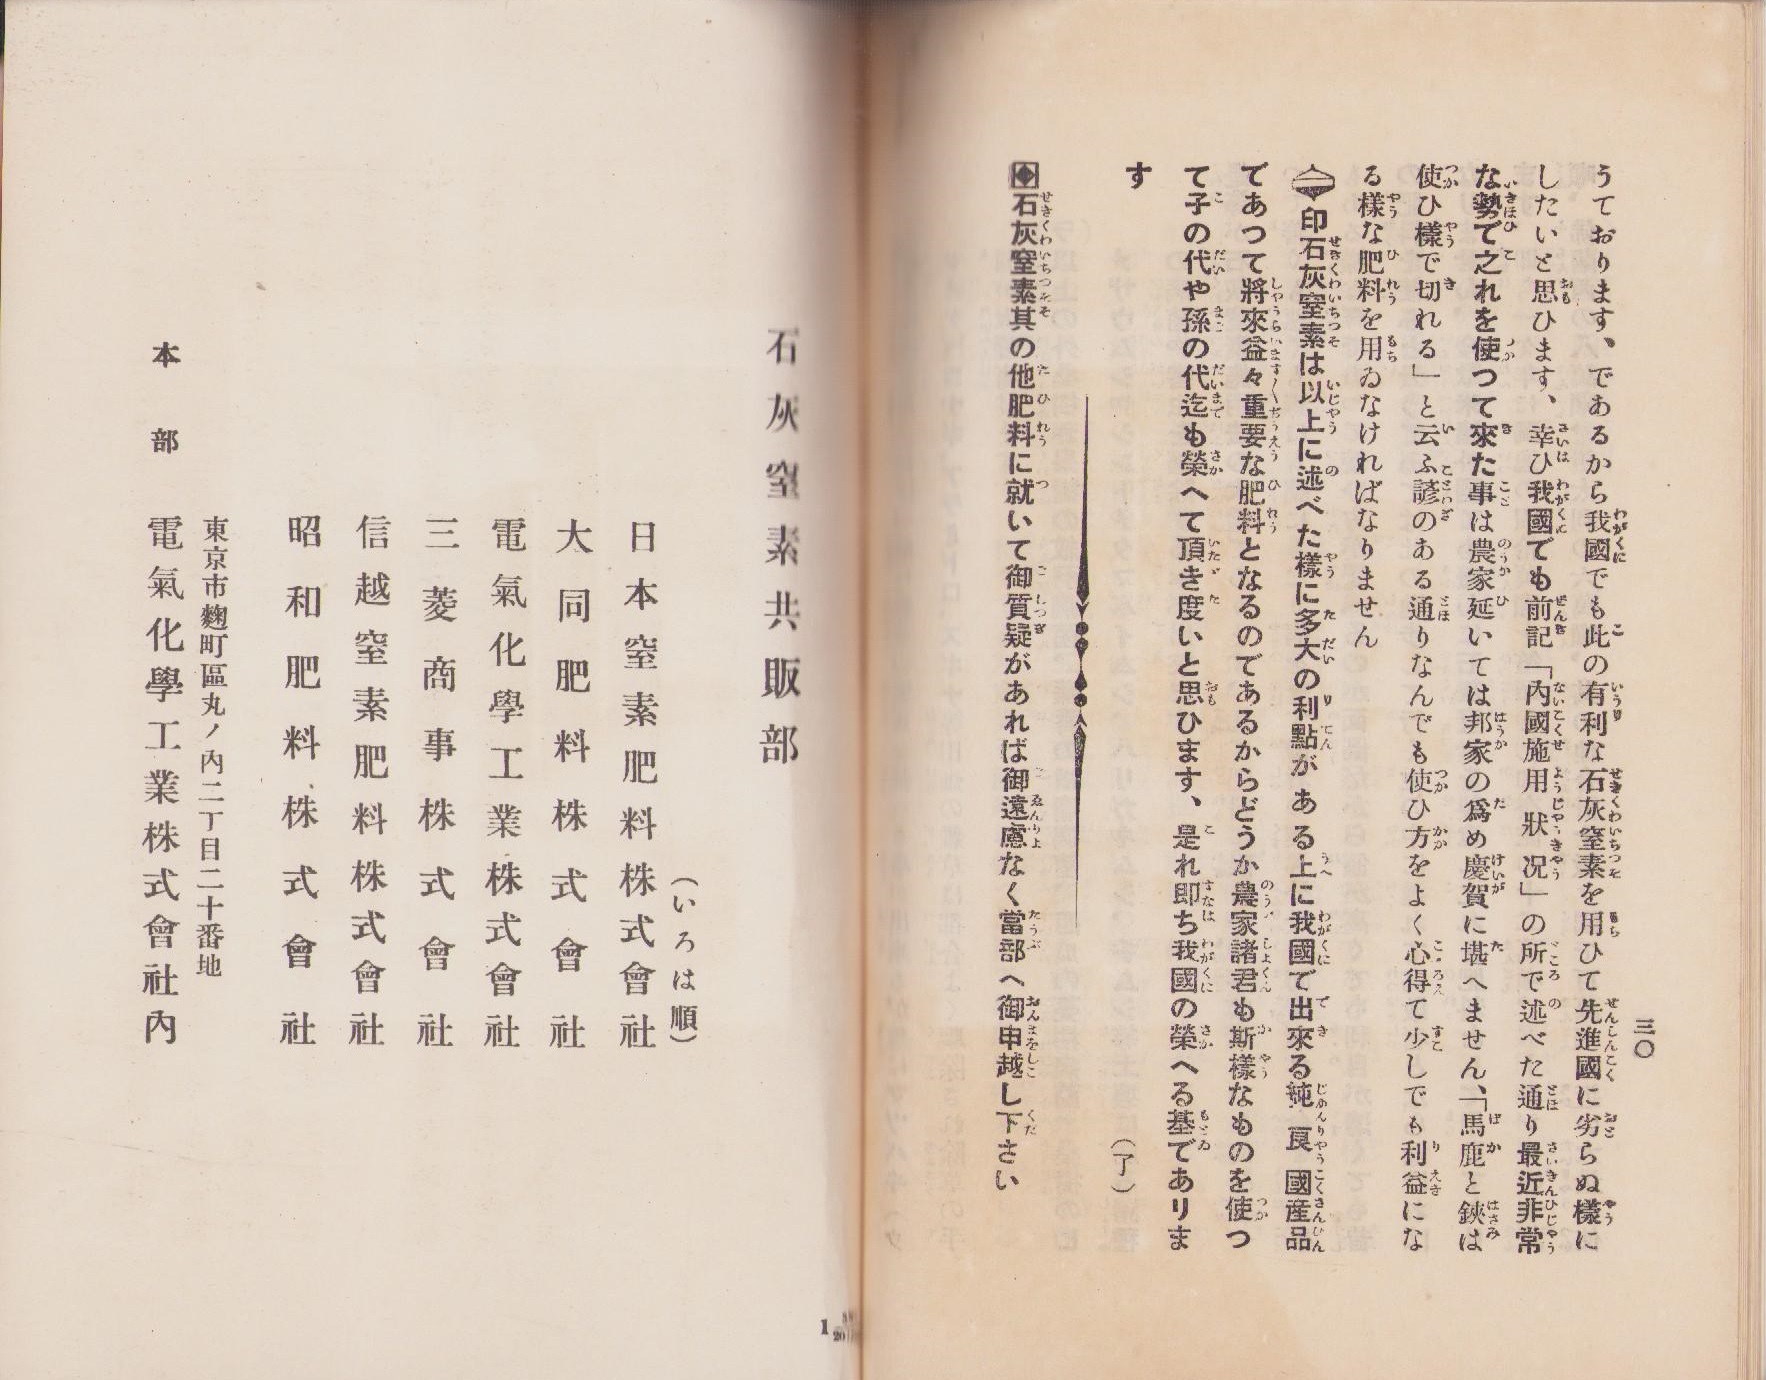 三〇
うております、であるから我國でも此の有利な石灰窒素を用ひて先進國に劣らぬ樣に
したいと思ひます、幸ひ我國でも前記「內國施用狀況」の所で述べた通り最近非常
な勢で之れを使つて來た事は農家延いては邦家の爲め慶賀に堪へません、「馬鹿と鋏は
使ひ樣で切れる」と云ふ諺のある通りなんでも使ひ方をよく心得て少しでも利益にな
る樣な肥料を用ゐなければなりません
印石灰窒素は以上に述べた樣に多大の利點がある上に我國で出來る純良國産品
であつて將來益々重要な肥料となるのであるからどうか農家諸君も斯樣なものを使つ
て子の代や孫の代迄も榮へて頂き度いと思ひます、是れ即ち我國の榮へる基でありま
す
(了)
石灰窒素其の他肥料に就いて御質疑があれば御遠慮なく當部へ御申越し下さい
石灰窒素共販部
(いろは順)
日本窒素肥料株式會社
大同肥料株式會社
電氣化學工業株式會社
三菱商事株式會社
信越窒素肥料株式會社
昭和肥料株式會社
東京市麴町區丸ノ內二丁目二十番地
本部 電氣化學工業株式會社內